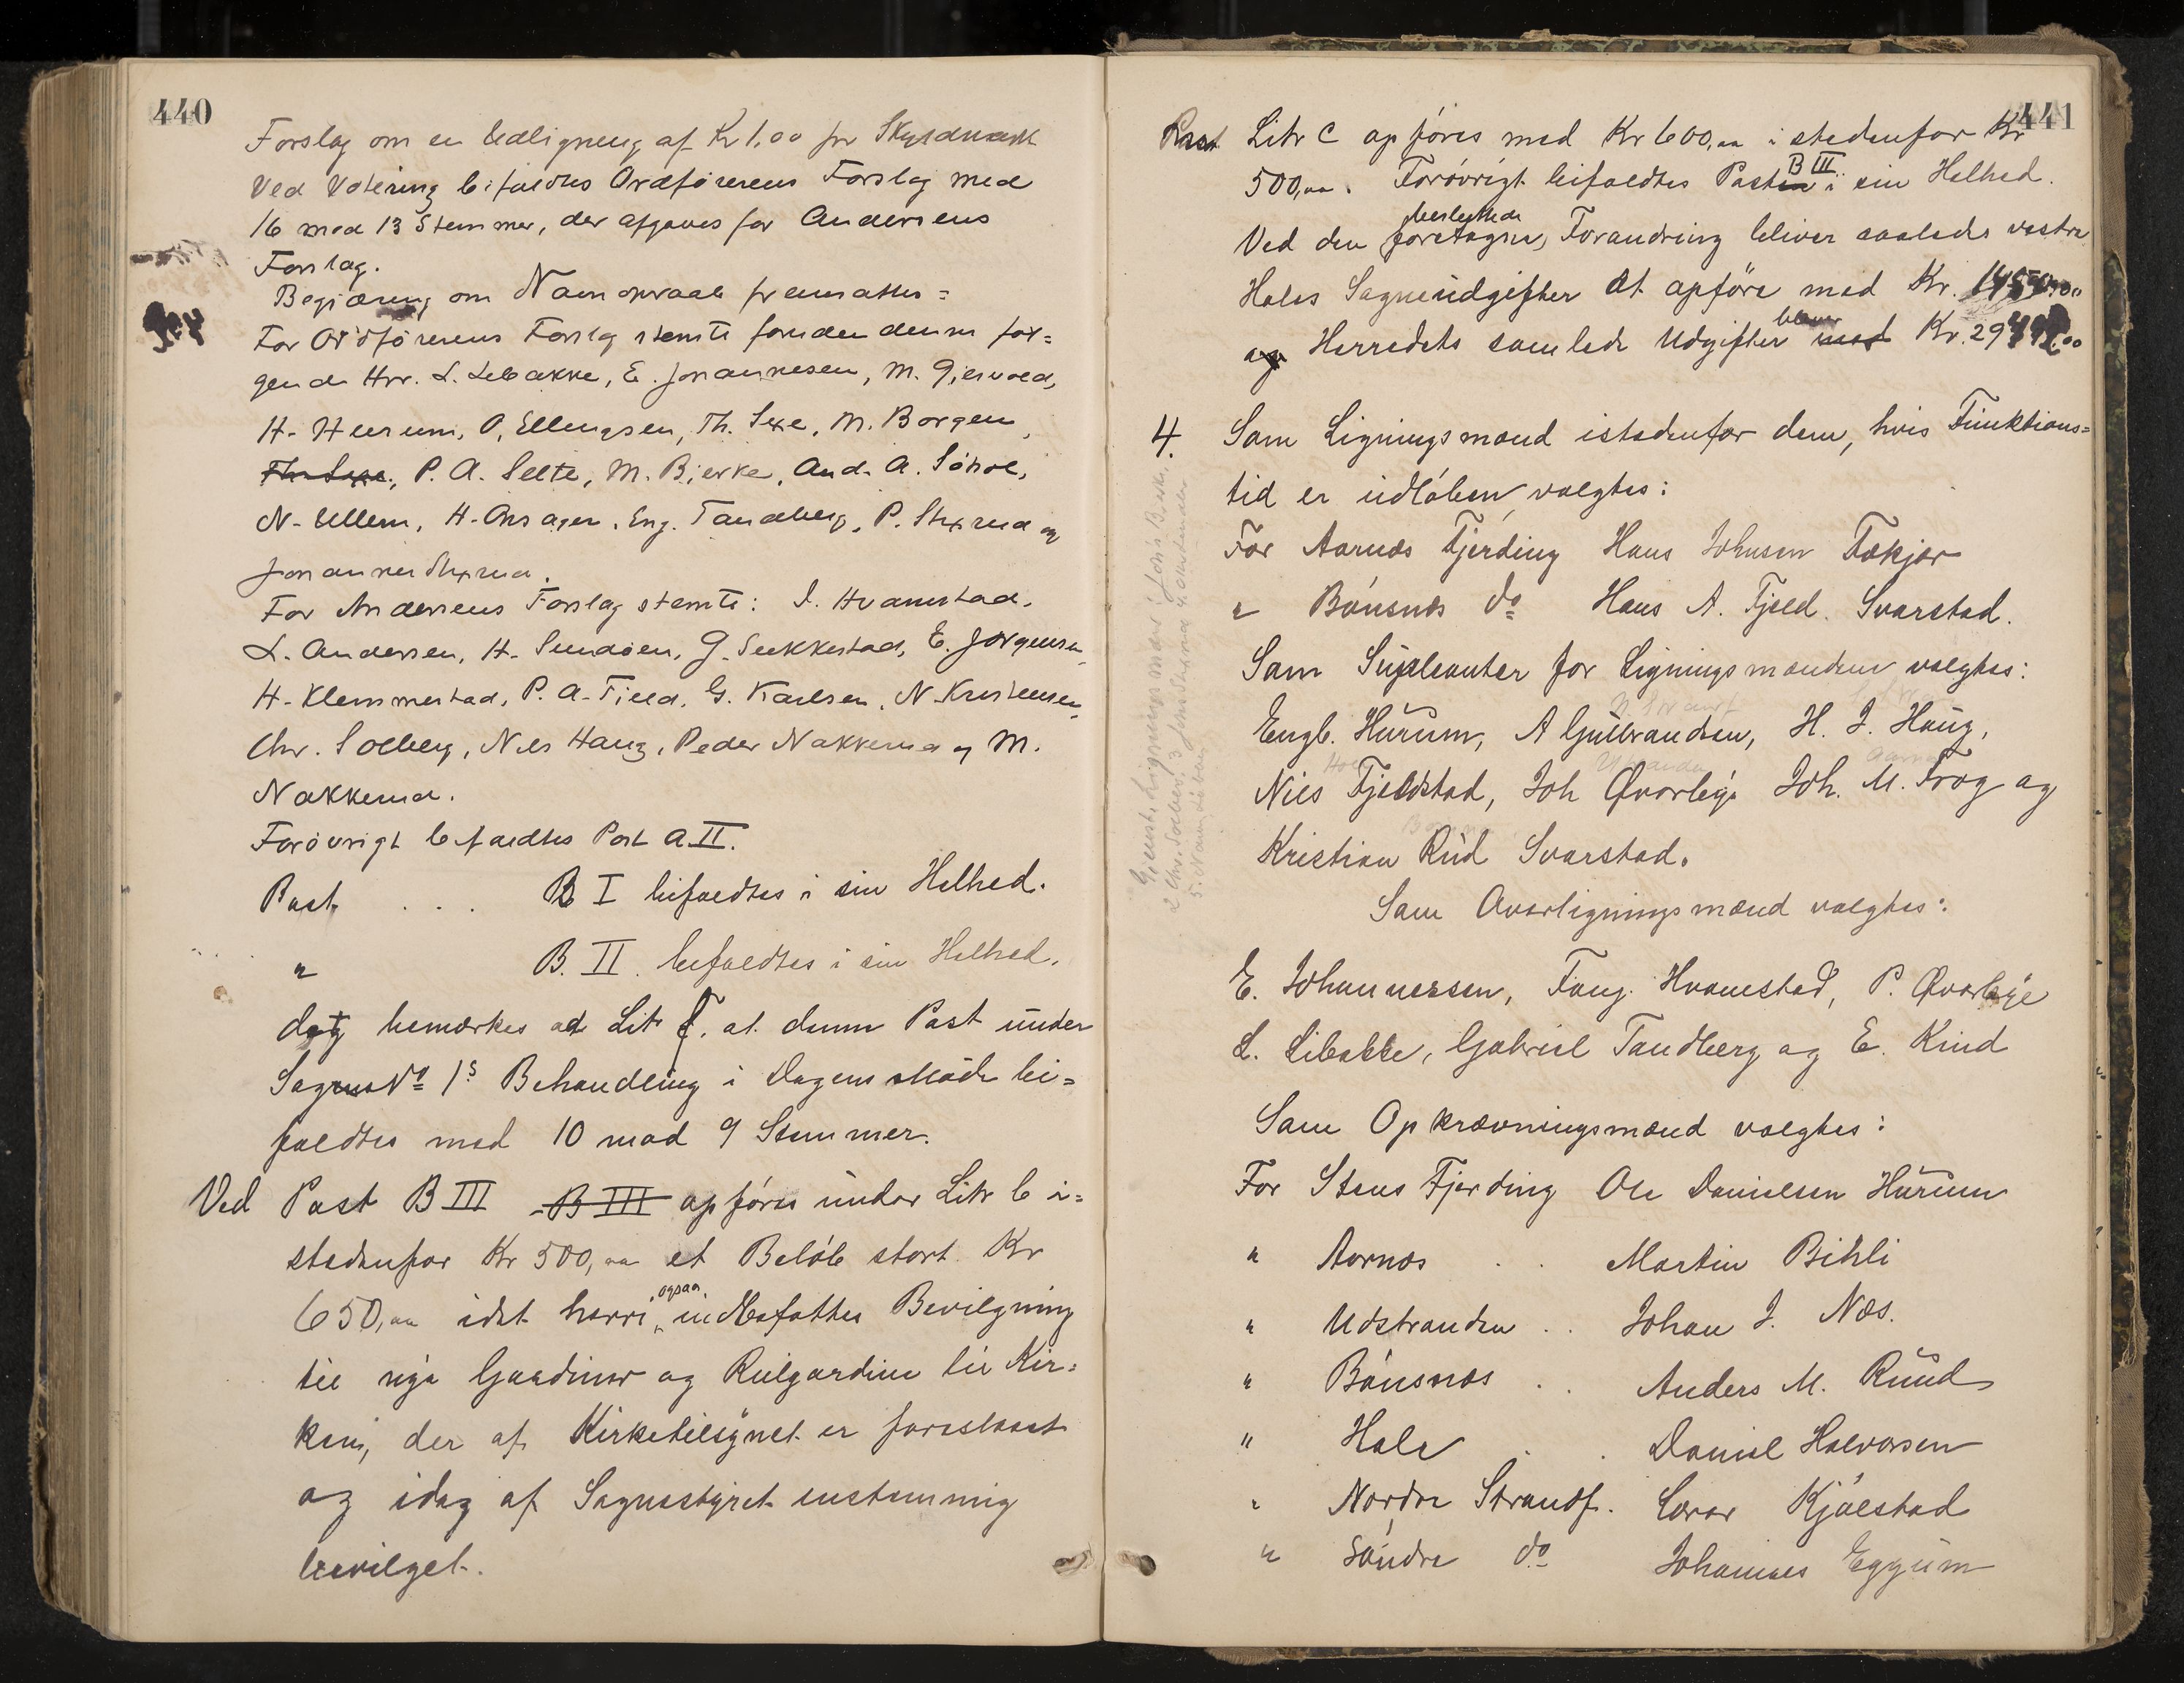 440
Forslag om en Udligning af Kr 1,00 pr Skyldmark
Ved Votering bifaldtes Ordførerens Forslag med
16 mod 13 Stemmer, der afgaves for Andersens
Forslag.
Begjæring om Navneopraab fremsattes =
For Ordførerens Forslag stemte foruden denne føl=
gende Hrr. L. Libakke, E. Johannesen, M. Gjesvold,
H. Hurum, O. Ellingsen, Th. Sexe, M. Borgen,
Th. Sexe, P. A. Selte, M. Bjerke, And. A. Söhol,
N. Ullern, H. Onsager, Eng. Tandberg, P. Stixrud og
Johannes Stixrud.
For Andersens Forslag stemte: I. Hvamstad,
L. Andersen, H. Sundøen, G. Sukkestad, E. Jørgensen,
H. Klemmestad, P. A. Fjeld, G. Karlsen, N. Kristensen,
Chr. Solberg, Nils Haug, Peder Nakkerud og M.
Nakkerud.
Forøvrigt bifaldtes Post A. II.
Post . . . B I bifaldtes i sin Helhed.
" B. II. bifaldtes i sin Helhed,
dog bemærkes ad Litr f. at denne Post under
Sagens No 1s Behandling i Dagens Møde bi=
faldtes med 10 mod 9 Stemmer.
Ved Post B III B III opføres under Litr b i=
stedenfor Kr 500,00 et Beløb stort Kr
650,00 idet heri ogsaa indbefattes Bevilgning
til nye Gardiner og Rulgardine til Kir=
ken, der af Kirketilsynet er foreslaaet
og idag af Sognestyret enstemmig
bevilget.
441
Post Litr C opføres med Kr 600,00 i stedenfor Kr
500,00. Forøvrigt bifaldtes Posten B III i sin Helhed.
Ved den foretagne besluttede Forandring bliver saaledes vestre
Holes Sogneudgifter at opføre med Kr.
og Herredets samlede Udgifter med bliver Kr. 29
4. Som Ligningsmænd istedenfor dem, hvis Funktions=
tid er udløben, valgtes:
For Aarnæs Fjerding Hans Johnsen Fækjær
" Bønsnæs do Hans A. Fjeld. Svarstad.
Som Supleanter for Ligningsmændene valgtes:
Engb. Hurum, A Gulbrandsen, H. J. Haug,
Nils Fjeldstad, Joh Øverby Joh. M. Frog og
Kristian Rud Svarstad.
Som Overligningsmænd valgtes:
E. Johannessen, Ing. Hvamstad, P. Øverbye
L. Libakke, Gabriel Tandberg og E. Kind
Som Opkrævningsmænd valgtes:
For Stens Fjerding Ole Danielsen Hurum
" Aarnæs . . Martin Bihli
" Udstranden . . Johan J. Næs.
" Bønsnæs . . Anders M. Ruud
" Hole . . Daniel Halvorsen
" Nordre Strandf. Lærer Kjølstad
" Søndre do Johannes Eggum